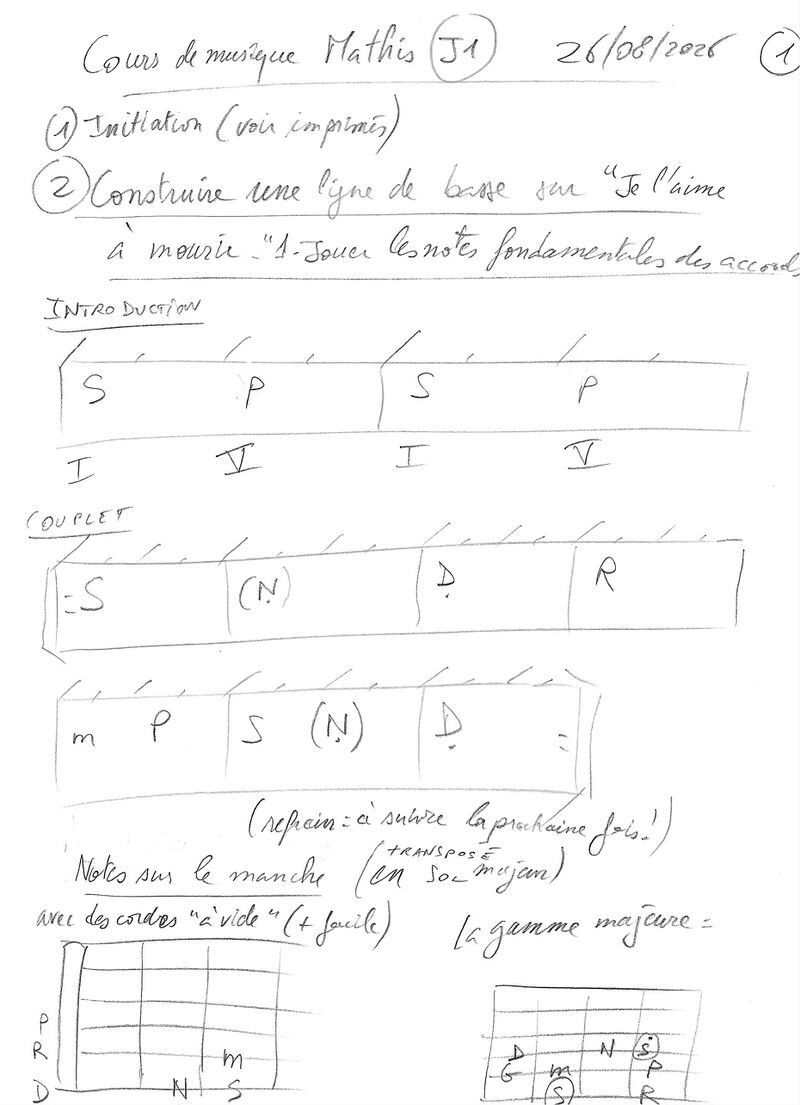 Cours de musique Mathis J1 26/08/2026 1
1 Initiation (voir imprimés)
2 Construire une ligne de basse sur "Je l'aime
à mourir -"1- Jouer les notes fondamentales des accords
INTRODUCTION
S P S P
I V I V
COUPLET
S (Ṇ) Ḍ R
m P S (Ṇ) Ḍ
(refrain = à suivre la prochaine fois!)
Notes sur le manche (en TRANSPOSÉ SOL majeur)
avec des cordes "à vide" (+ facile) la gamme majeure =
P
R m
D N S
D N Ṡ
G m P
S R